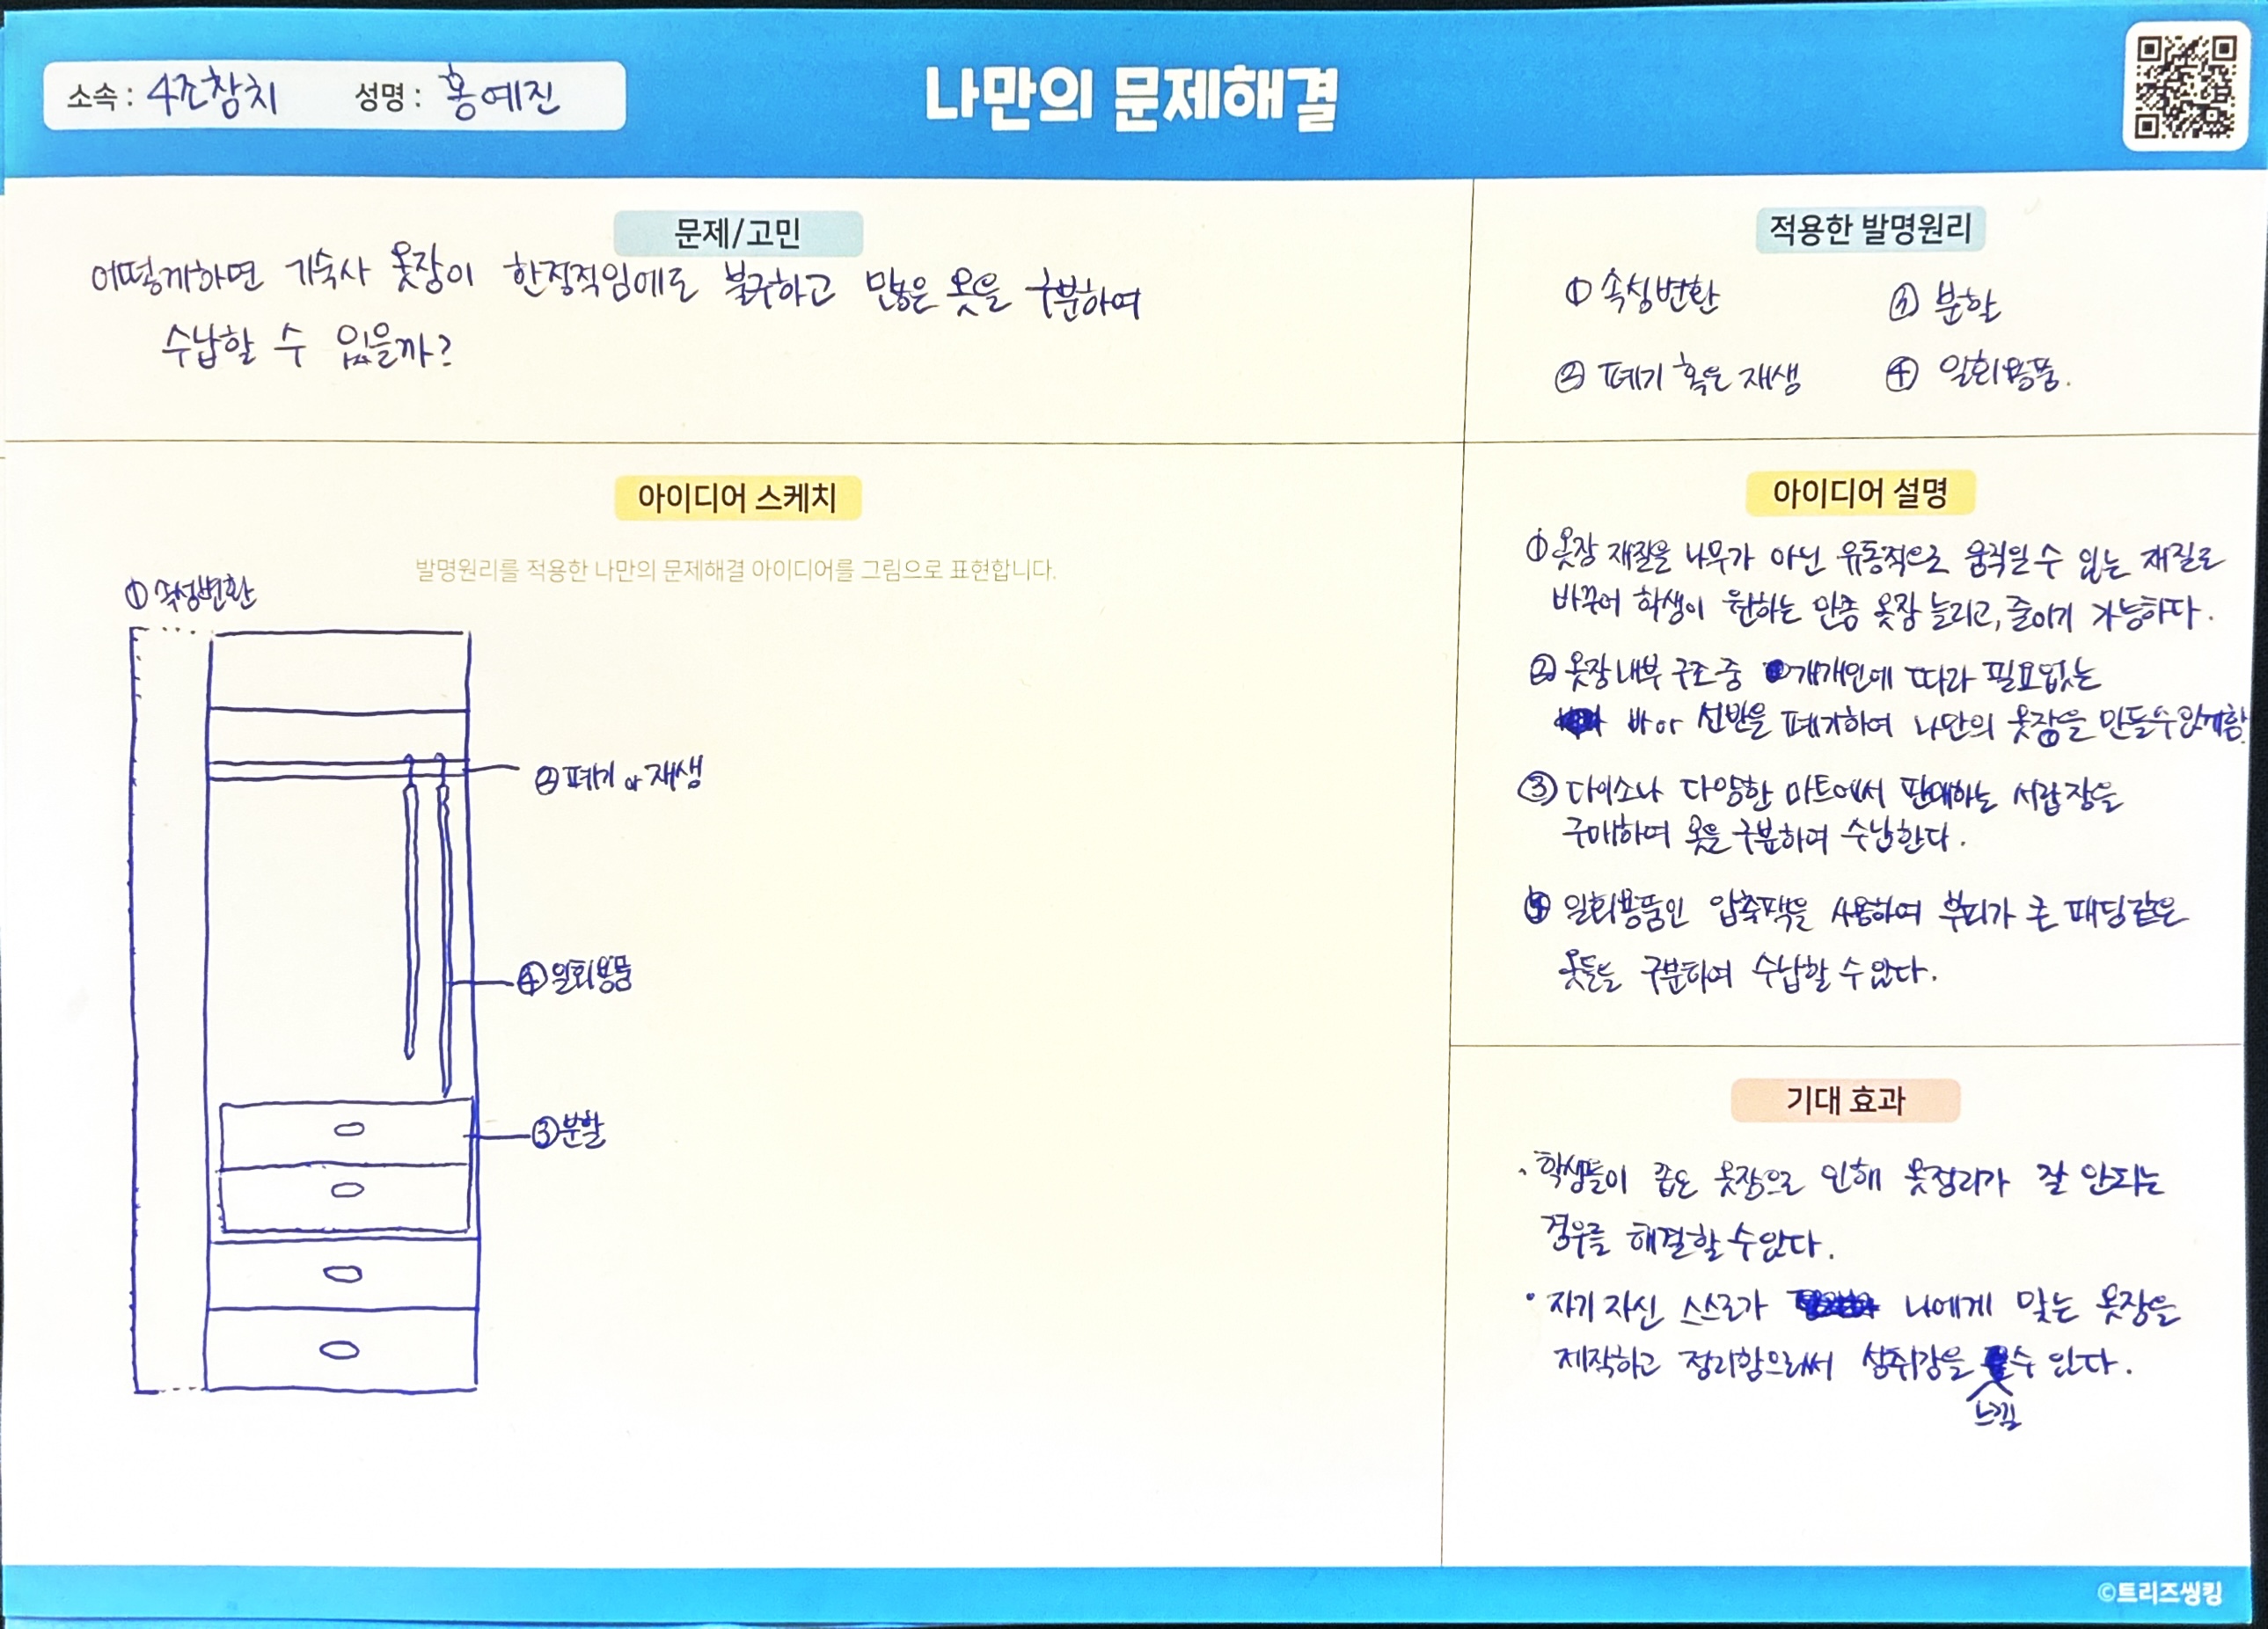 소속 : 4조참치 성명 : 홍예진
나만의 문제해결
문제/고민
어떻게하면 기숙사 옷장이 한정적임에도 불구하고 많은 옷을 구분하여
수납할 수 있을까?
적용한 발명원리
① 속성변환 ③ 분할
② 폐기 혹은 재생 ④ 일회용품.
아이디어 스케치
발명원리를 적용한 나만의 문제해결 아이디어를 그림으로 표현합니다.
① 속성변환
② 폐기 or 재생
④ 일회용품
③ 분할
아이디어 설명
① 옷장 재질을 나무가 아닌 유동적으로 움직일 수 있는 재질로
바꾸어 학생이 원하는 만큼 옷장 늘리고, 줄이기 가능하다.
② 옷장 내부 구조 중 개개인에 따라 필요없는
바 or 선반을 폐기하여 나만의 옷장을 만들 수 있게함
③ 다이소나 다양한 마트에서 판매하는 서랍장을
구매하여 옷을 구분하여 수납한다.
④ 일회용품인 압축팩을 사용하여 부피가 큰 패딩같은
옷들을 구분하여 수납할 수 있다.
기대 효과
· 학생들이 좁은 옷장으로 인해 옷정리가 잘 안되는
경우를 해결할 수 있다.
· 자기 자신 스스로가 나에게 맞는 옷장을
제작하고 정리함으로써 성취감을 느낄 수 있다.
©트리즈씽킹